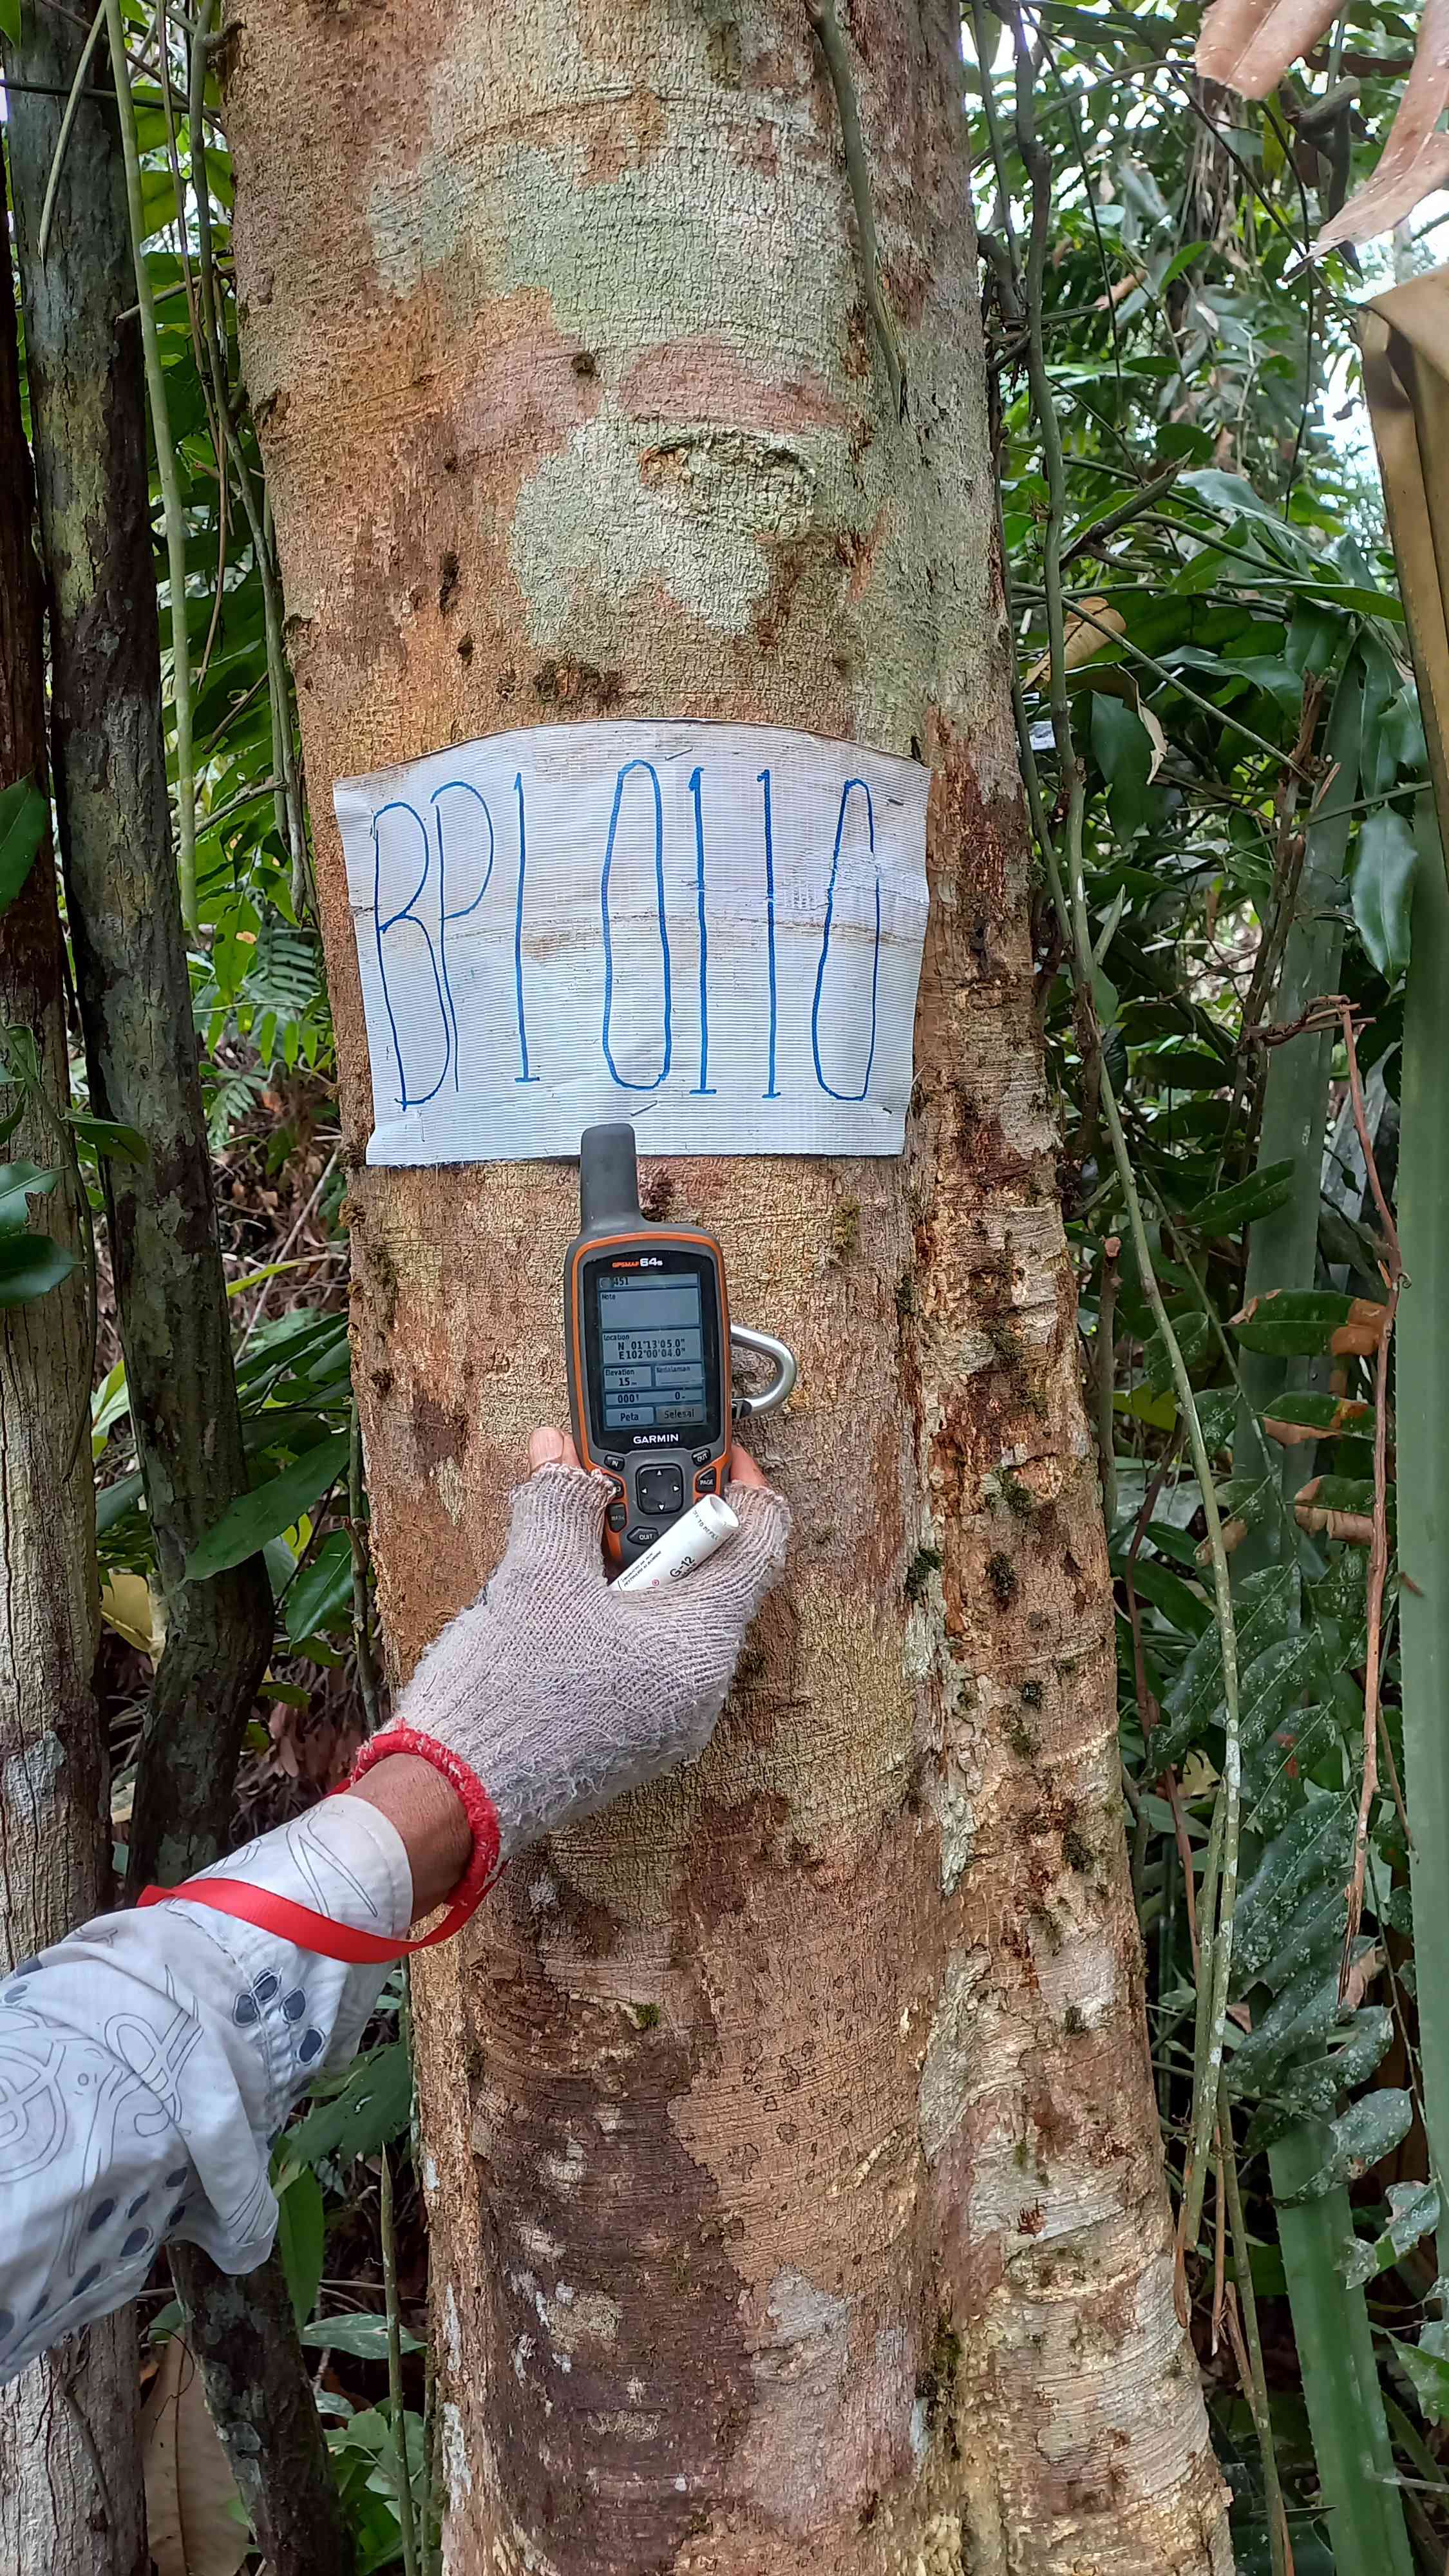 BP1 0110
GPSMAP 64s
451
Nota
Location
N 01°13'05.0"
E102°00'04.0"
Elevation
15m
Kedalaman
0001
0m
Peta
Selesai
GARMIN
IN
OUT
PAGE
QUIT
G-12